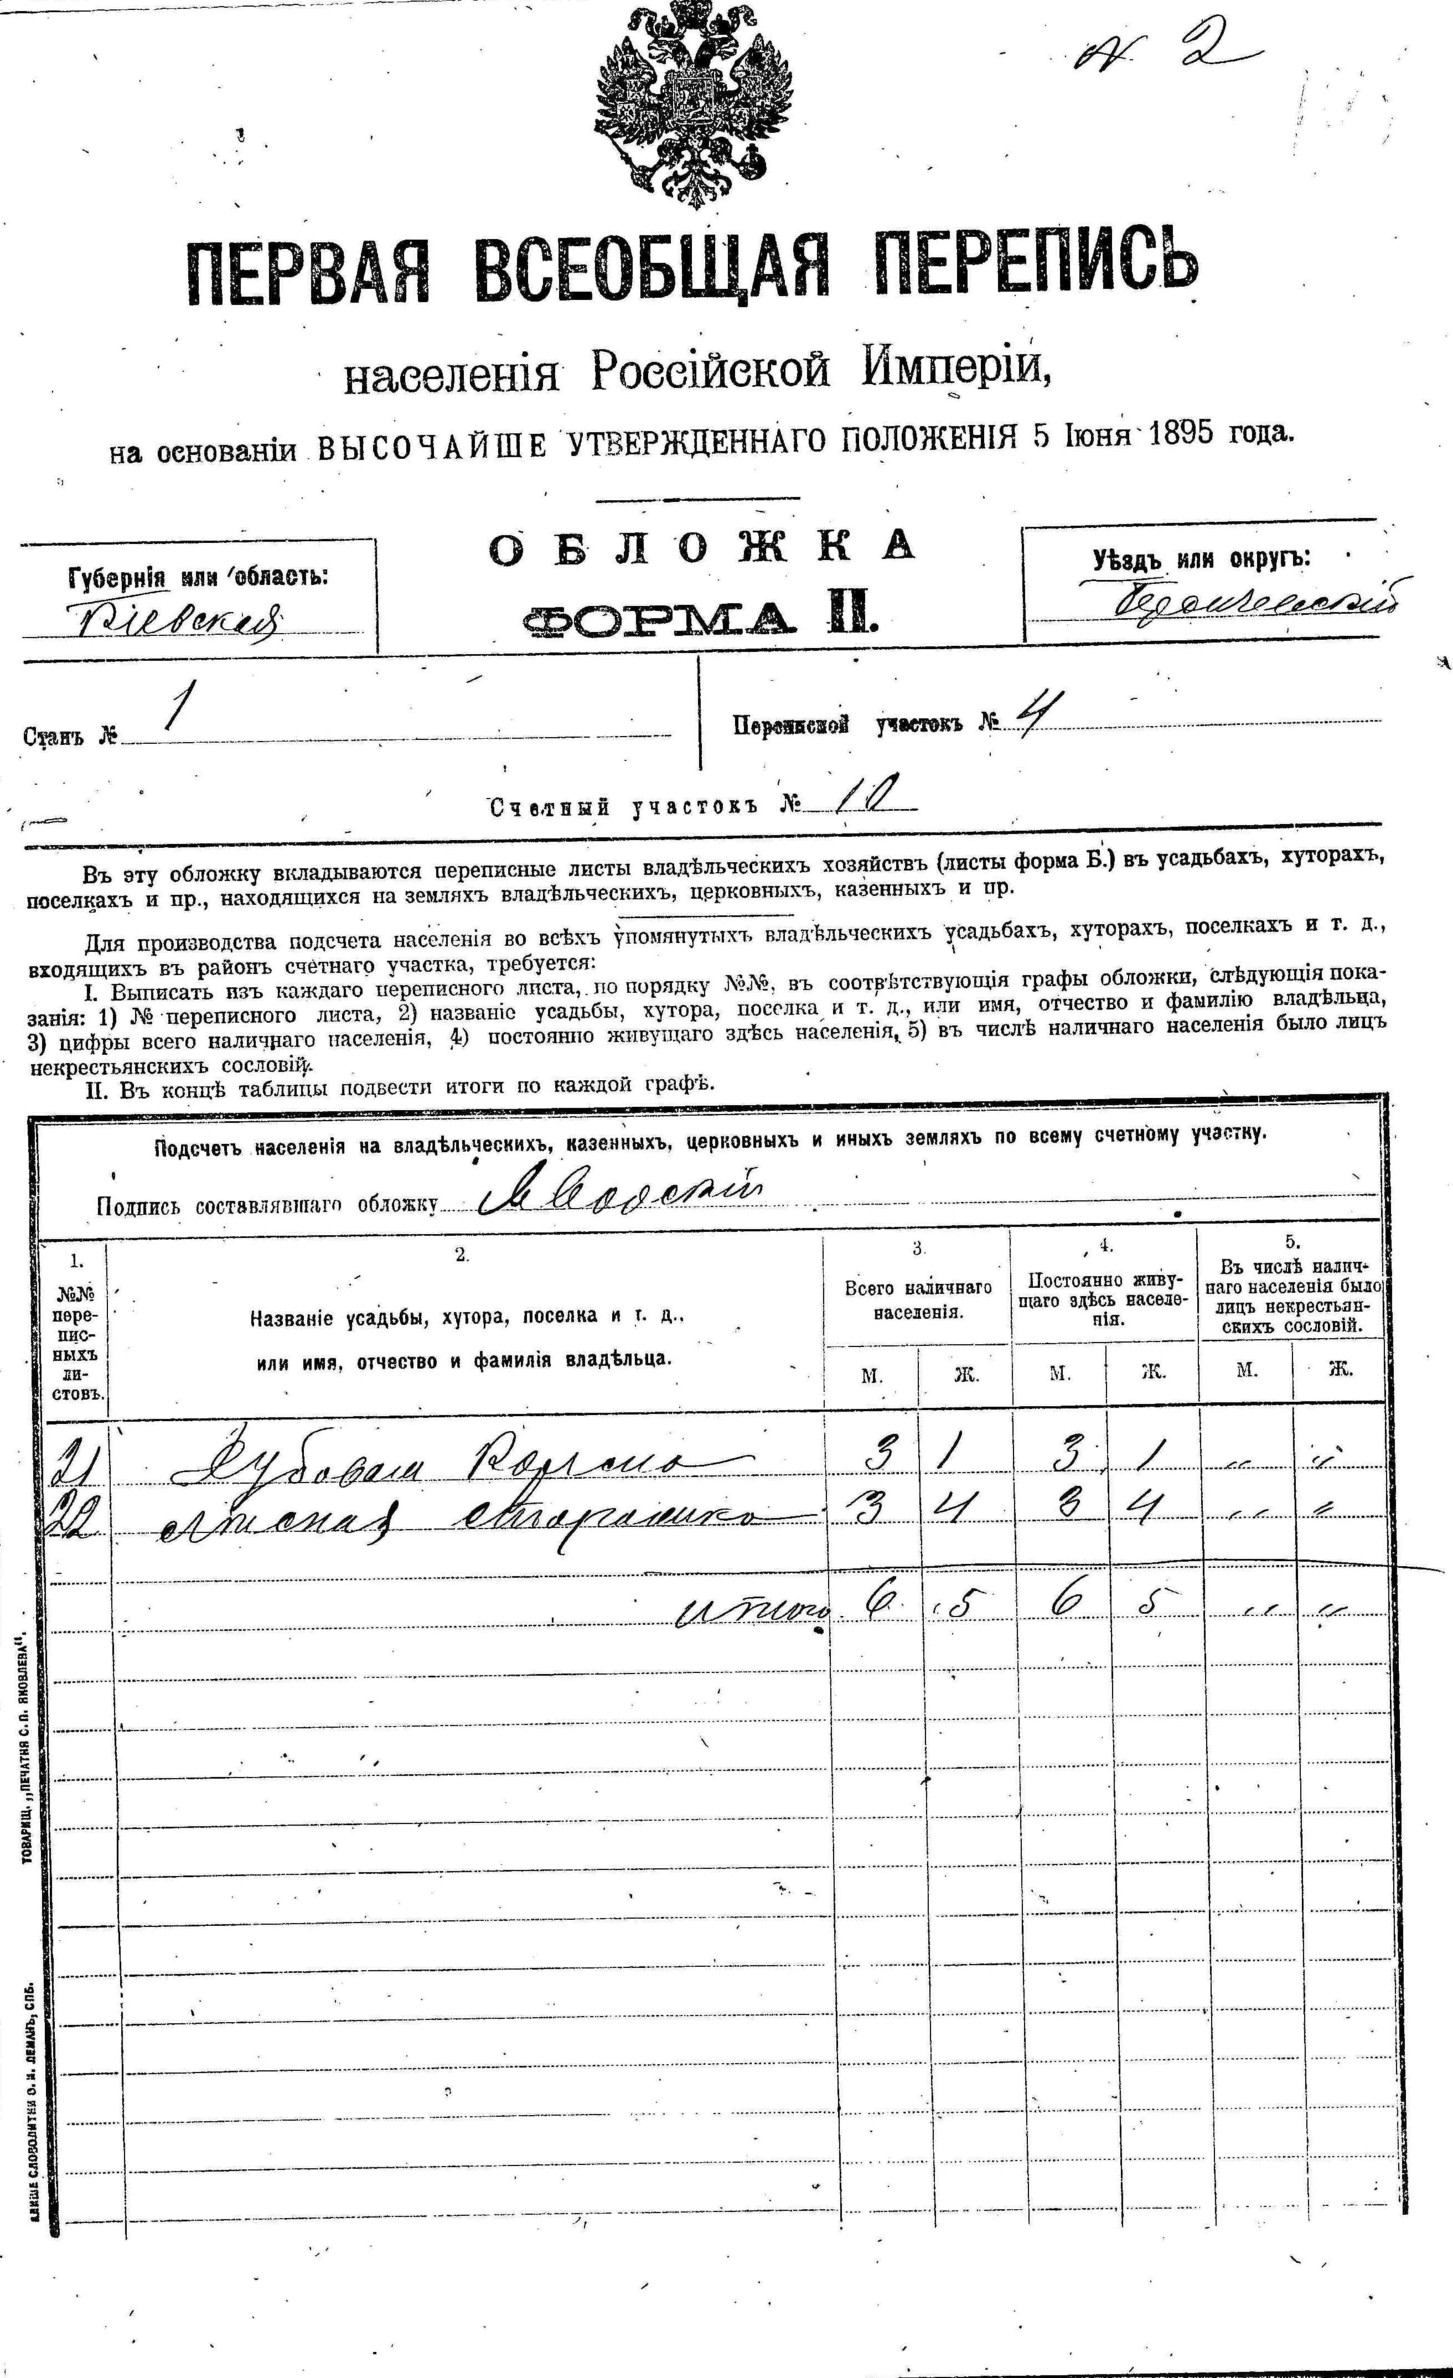 N 2
ПЕРВАЯ ВСЕОБЩАЯ ПЕРЕПИСЬ
населенія Россійской Имперіи,
на основаніи ВЫСОЧАЙШЕ УТВЕРЖДЕННАГО ПОЛОЖЕНІЯ 5 Іюня 1895 года.
ОБЛОЖКА
ФОРМА II.
Губернія или область:
Кіевская
Уѣздъ или округъ:
Станъ № 1
Переписной участокъ № 4
Счетный участокъ № 10
Въ эту обложку вкладываются переписные листы владѣльческихъ хозяйствъ (листы форма Б.) въ усадьбахъ, хуторахъ,
поселкахъ и пр., находящихся на земляхъ владѣльческихъ, церковныхъ, казенныхъ и пр.
Для производства подсчета населенія во всѣхъ упомянутыхъ владѣльческихъ усадьбахъ, хуторахъ, поселкахъ и т. д.,
входящихъ въ районъ счетнаго участка, требуется:
I. Выписать изъ каждаго переписного листа, по порядку №№, въ соотвѣтствующія графы обложки, слѣдующія пока-
занія: 1) № переписного листа, 2) названіе усадьбы, хутора, поселка и т. д., или имя, отчество и фамилію владѣльца,
3) цифры всего наличнаго населенія, 4) постоянно живущаго здѣсь населенія, 5) въ числѣ наличнаго населенія было лицъ
некрестьянскихъ сословій.
II. Въ концѣ таблицы подвести итоги по каждой графѣ.
Подсчетъ населенія на владѣльческихъ, казенныхъ, церковныхъ и иныхъ земляхъ по всему счетному участку.
Подпись составлявшаго обложку
1. 2. 3. 4. 5.
№№ пере-пис-ныхъ ли-стовъ.
Названіе усадьбы, хутора, поселка и т. д.,
или имя, отчество и фамилія владѣльца.
Всего наличнаго населенія.
Постоянно живу-щаго здѣсь населе-нія.
Въ числѣ налич-наго населенія было лицъ некрестьян-скихъ сословій.
М. Ж. М. Ж. М. Ж.
21 3 1 3 1 " "
22 Лисная 3 4 3 4 " "
итого 6 5 6 5 " "
ТОВАРИЩ. „ПЕЧАТНЯ С. П. ЯКОВЛЕВА".
КЛИШЕ СЛОВОЛИТНИ О. И. ЛЕМАНЪ, СПБ.